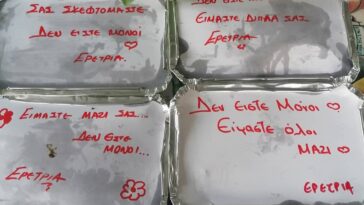 ΣΑΣ ΣΚΕΦΤΟΜΑΣΤΕ
ΔΕΝ ΕΙΣΤΕ ΜΟΝΟΙ
ΕΡΕΤΡΙΑ
ΔΕΝ ΕΙΣΤΕ
ΕΙΜΑΣΤΕ ΔΙΠΛΑ ΣΑΣ
ΕΡΕΤΡΙΑ
ΕΙΜΑΣΤΕ ΜΑΖΙ ΣΑΣ...
ΔΕΝ ΕΙΣΤΕ
ΜΟΝΟΙ...
ΕΡΕΤΡΙΑ
Δεν ειστε Μονοι
Είμαστε όλοι
ΜΑΖΙ
ΕΡΕΤΡΙΑ